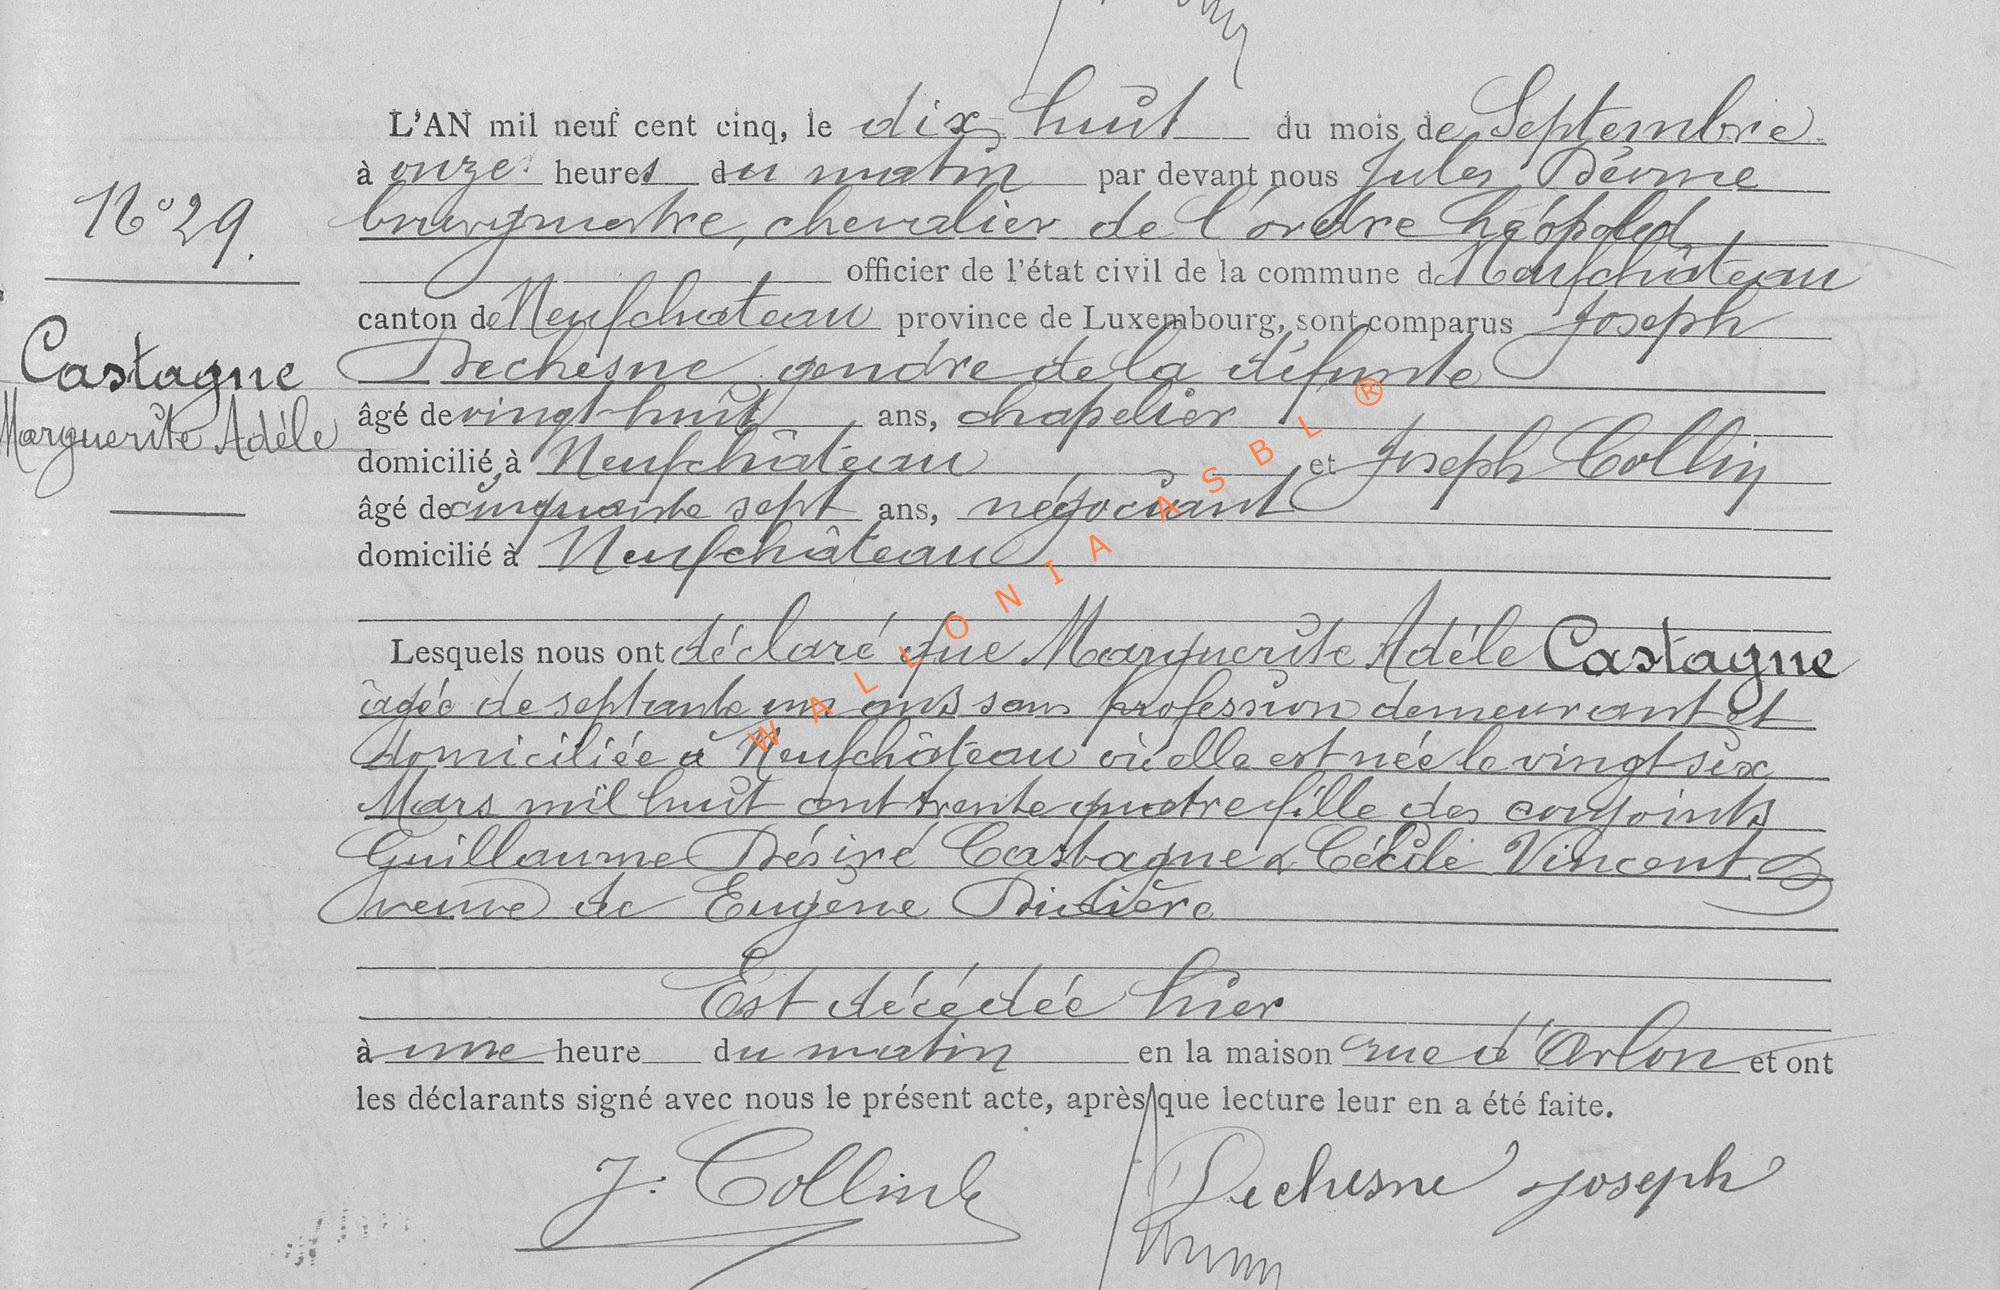 L'AN mil neuf cent cinq, le dix huit du mois de Septembre
à onze heures du matin par devant nous Jules
N° 29.
bourgmestre, chevalier de l'ordre Léopold
officier de l'état civil de la commune de Neufchâteau
canton de Neufchateau province de Luxembourg, sont comparus Joseph
Castagne
Dechesne gendre de la défunte
Marguerite Adèle
âgé de vingt huit ans, chapelier
domicilié à Neufchâteau et Joseph Collin
âgé de cinquante sept ans, négociant
domicilié à Neufchâteau
Lesquels nous ont déclaré que Marguerite Adèle Castagne
âgée de septante un ans sans profession demeurant et
domiciliée à Neufchâteau où elle est née le vingt six
Mars mil huit cent trente quatre fille des conjoints
Guillaume Désiré Castagne & Cécile Vincent
veuve de Eugène Divière
Est décédée hier
à une heure du matin en la maison rue d'Arlon et ont
les déclarants signé avec nous le présent acte, après que lecture leur en a été faite.
J. Collin Dechesne Joseph
WALLONIA ASBL ®